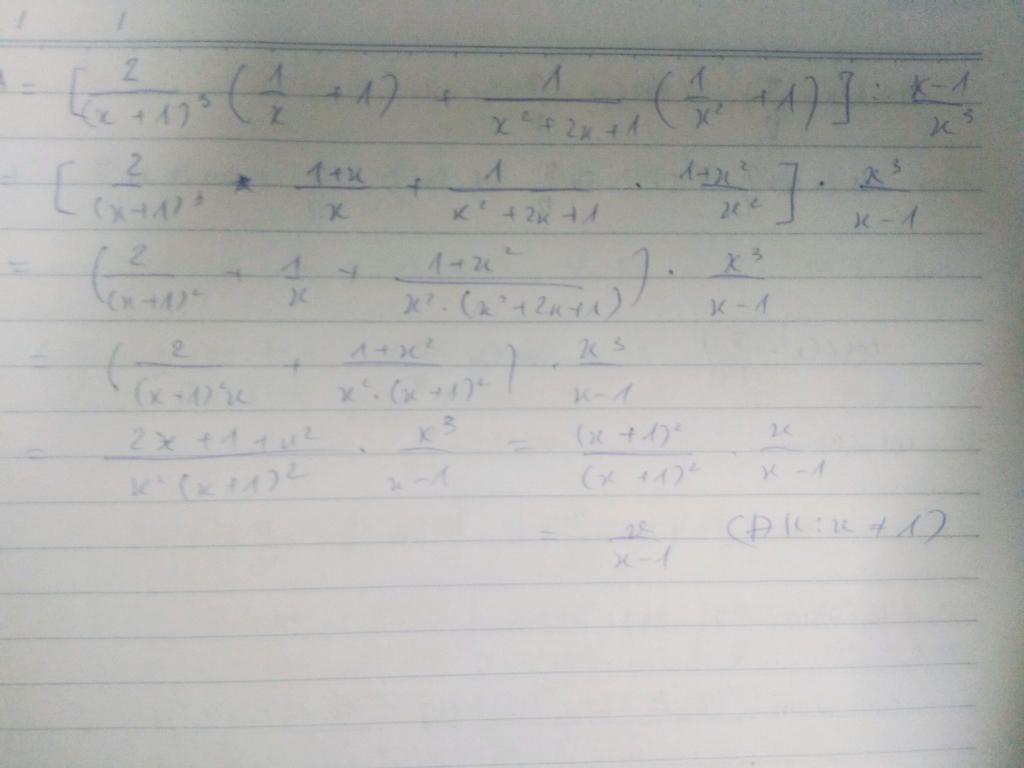 = [ 2/(x+1)³ (1/x + 1) + 1/(x²+2x+1) (1/x² + 1) ] : (x-1)/x³
= [ 2/(x+1)³ · (1+x)/x + 1/(x²+2x+1) · (1+x²)/x² ] · x³/(x-1)
= ( 2/(x+1)² + 1/x + (1+x²)/(x²·(x²+2x+1)) ) · x³/(x-1)
= ( 2/((x+1)²x) + (1+x²)/(x²·(x+1)²) ) · x³/(x-1)
= (2x+1+x²)/(x²(x+1)²) · x³/(x-1) = (x+1)²/(x+1)² · x/(x-1)
= x/(x-1) (ĐK: x ≠ 1)